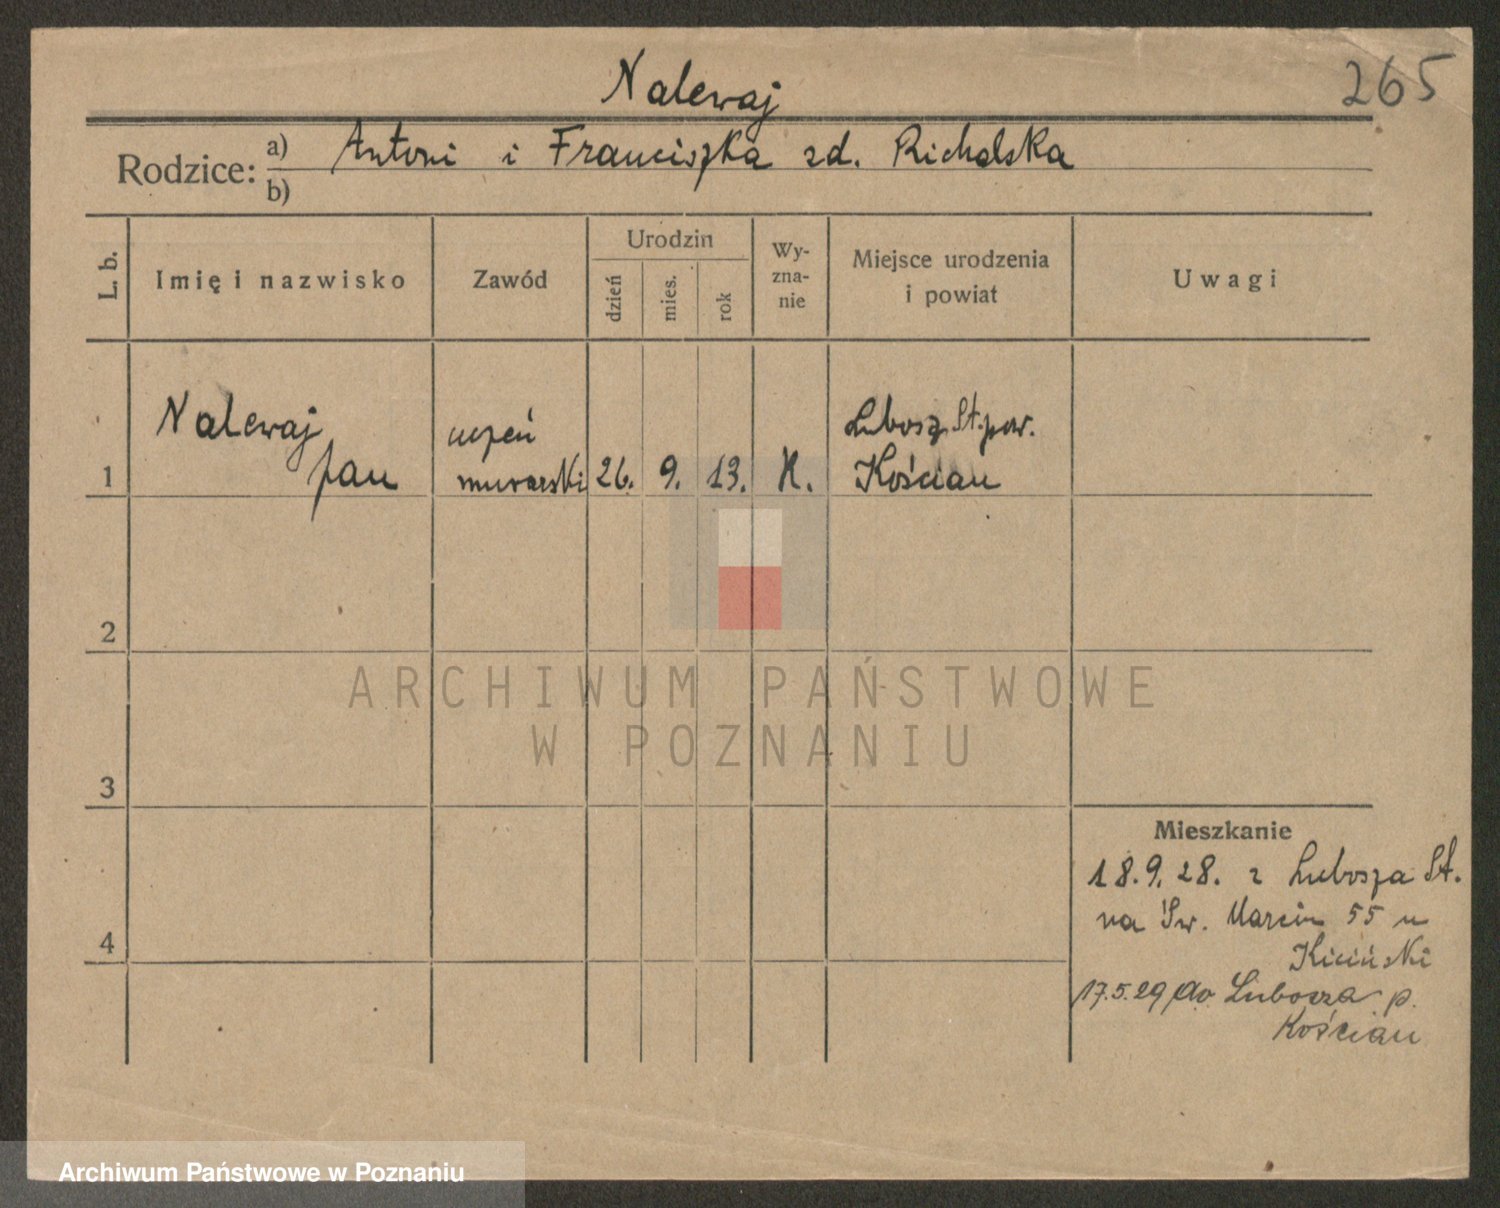 Nalewaj
265
Rodzice: a) Antoni i Franciszka zd. Richalska
b)
L. b.
Imię i nazwisko
Zawód
Urodzin
dzień
mies.
rok
Wy-
zna-
nie
Miejsce urodzenia
i powiat
Uwagi
Nalewaj uczeń Lubosz St. pow.
1 Jan murarski 26. 9. 13. K. Kościan
2
ARCHIWUM PAŃSTWOWE
W POZNANIU
3
Mieszkanie
18.9.28. z Lubosza St.
na Św. Marcin 55 u
4
Kiciński
17.5.29 do Lubosza p.
Kościan
Archiwum Państwowe w Poznaniu